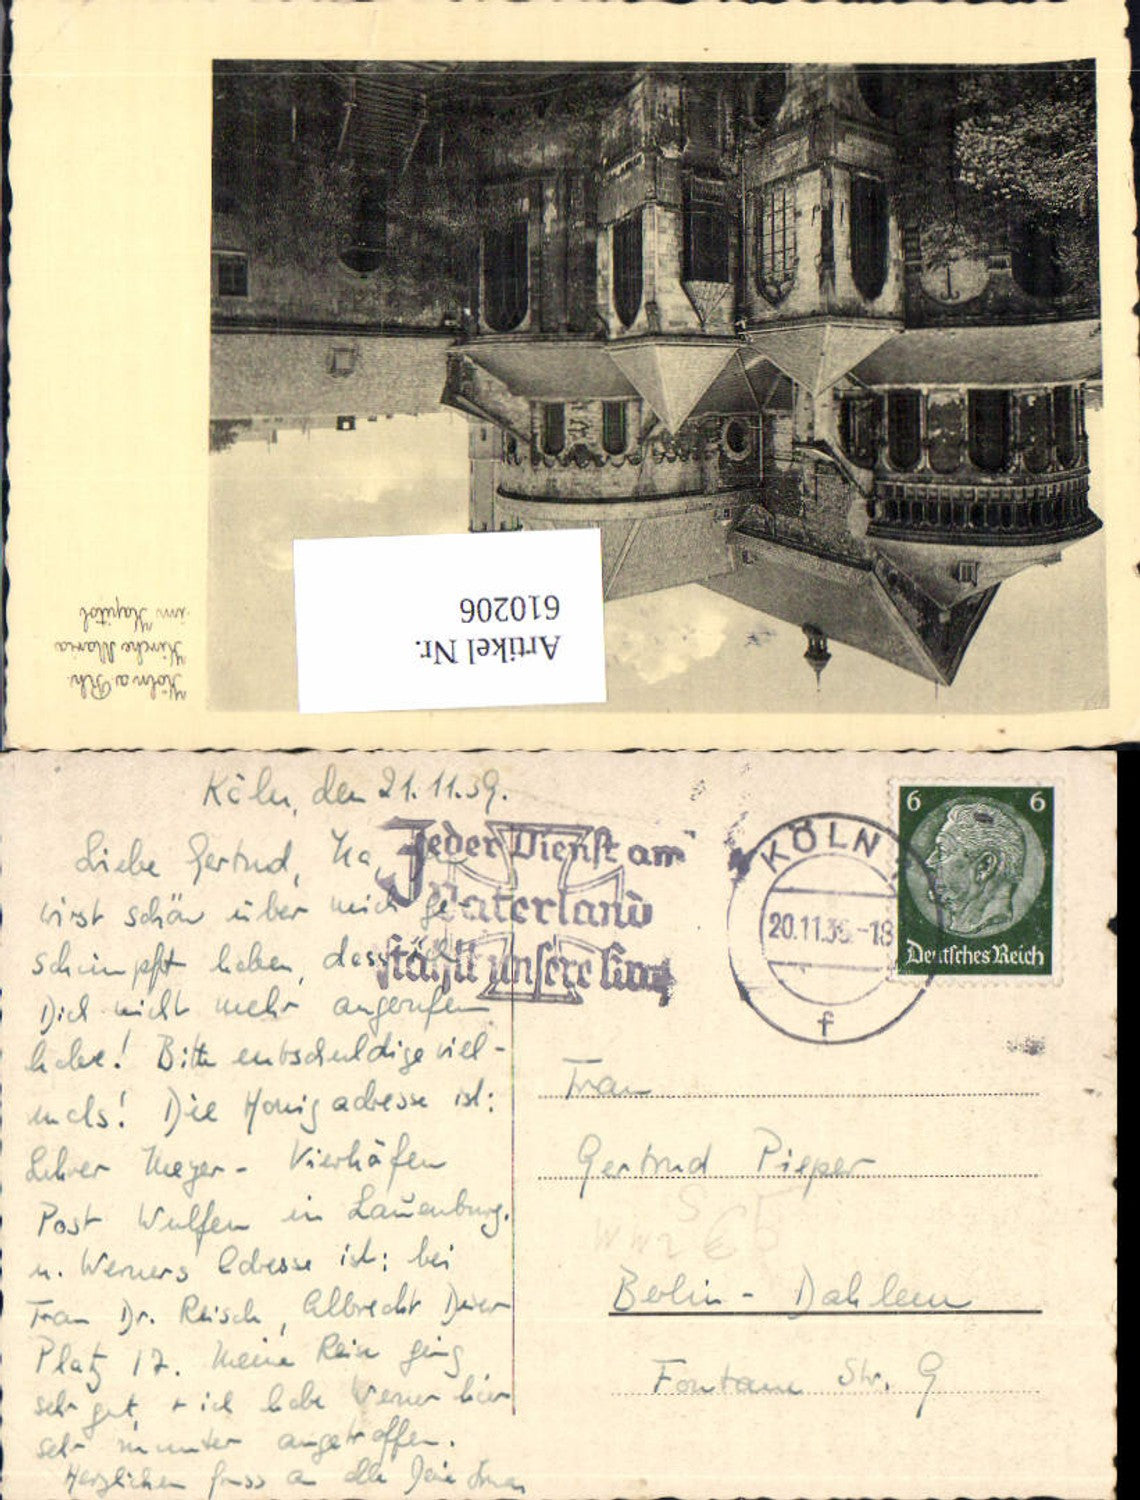 Artikel Nr.
610206
Köln a. Rh.
Kirche Maria
im Kapitol
Köln, den 21.11.39.
Liebe Gertrud, Na,
wirst schön über mich ge-
schimpft haben, dass ich
Dich nicht mehr angerufen
habe! Bitte entschuldige viel-
mals! Die Honigadresse ist:
Lehrer Meyer - Vierhöfen
Post Wulfen in Lauenburg.
u. Werners Adresse ist: bei
Frau Dr. Reisch, Albrecht Dürer
Platz 17. Meine Reise ging
sehr gut, + ich habe Werner hier
sehr munter angetroffen.
Herzlichen Gruss an alle Deine
Jeder Dienst am
Vaterland
stählt unsere
KÖLN
20.11.39.-18
f
6 6
Deutsches Reich
Frau
Gertrud Pieper
Berlin - Dahlem
Fontane Str. 9